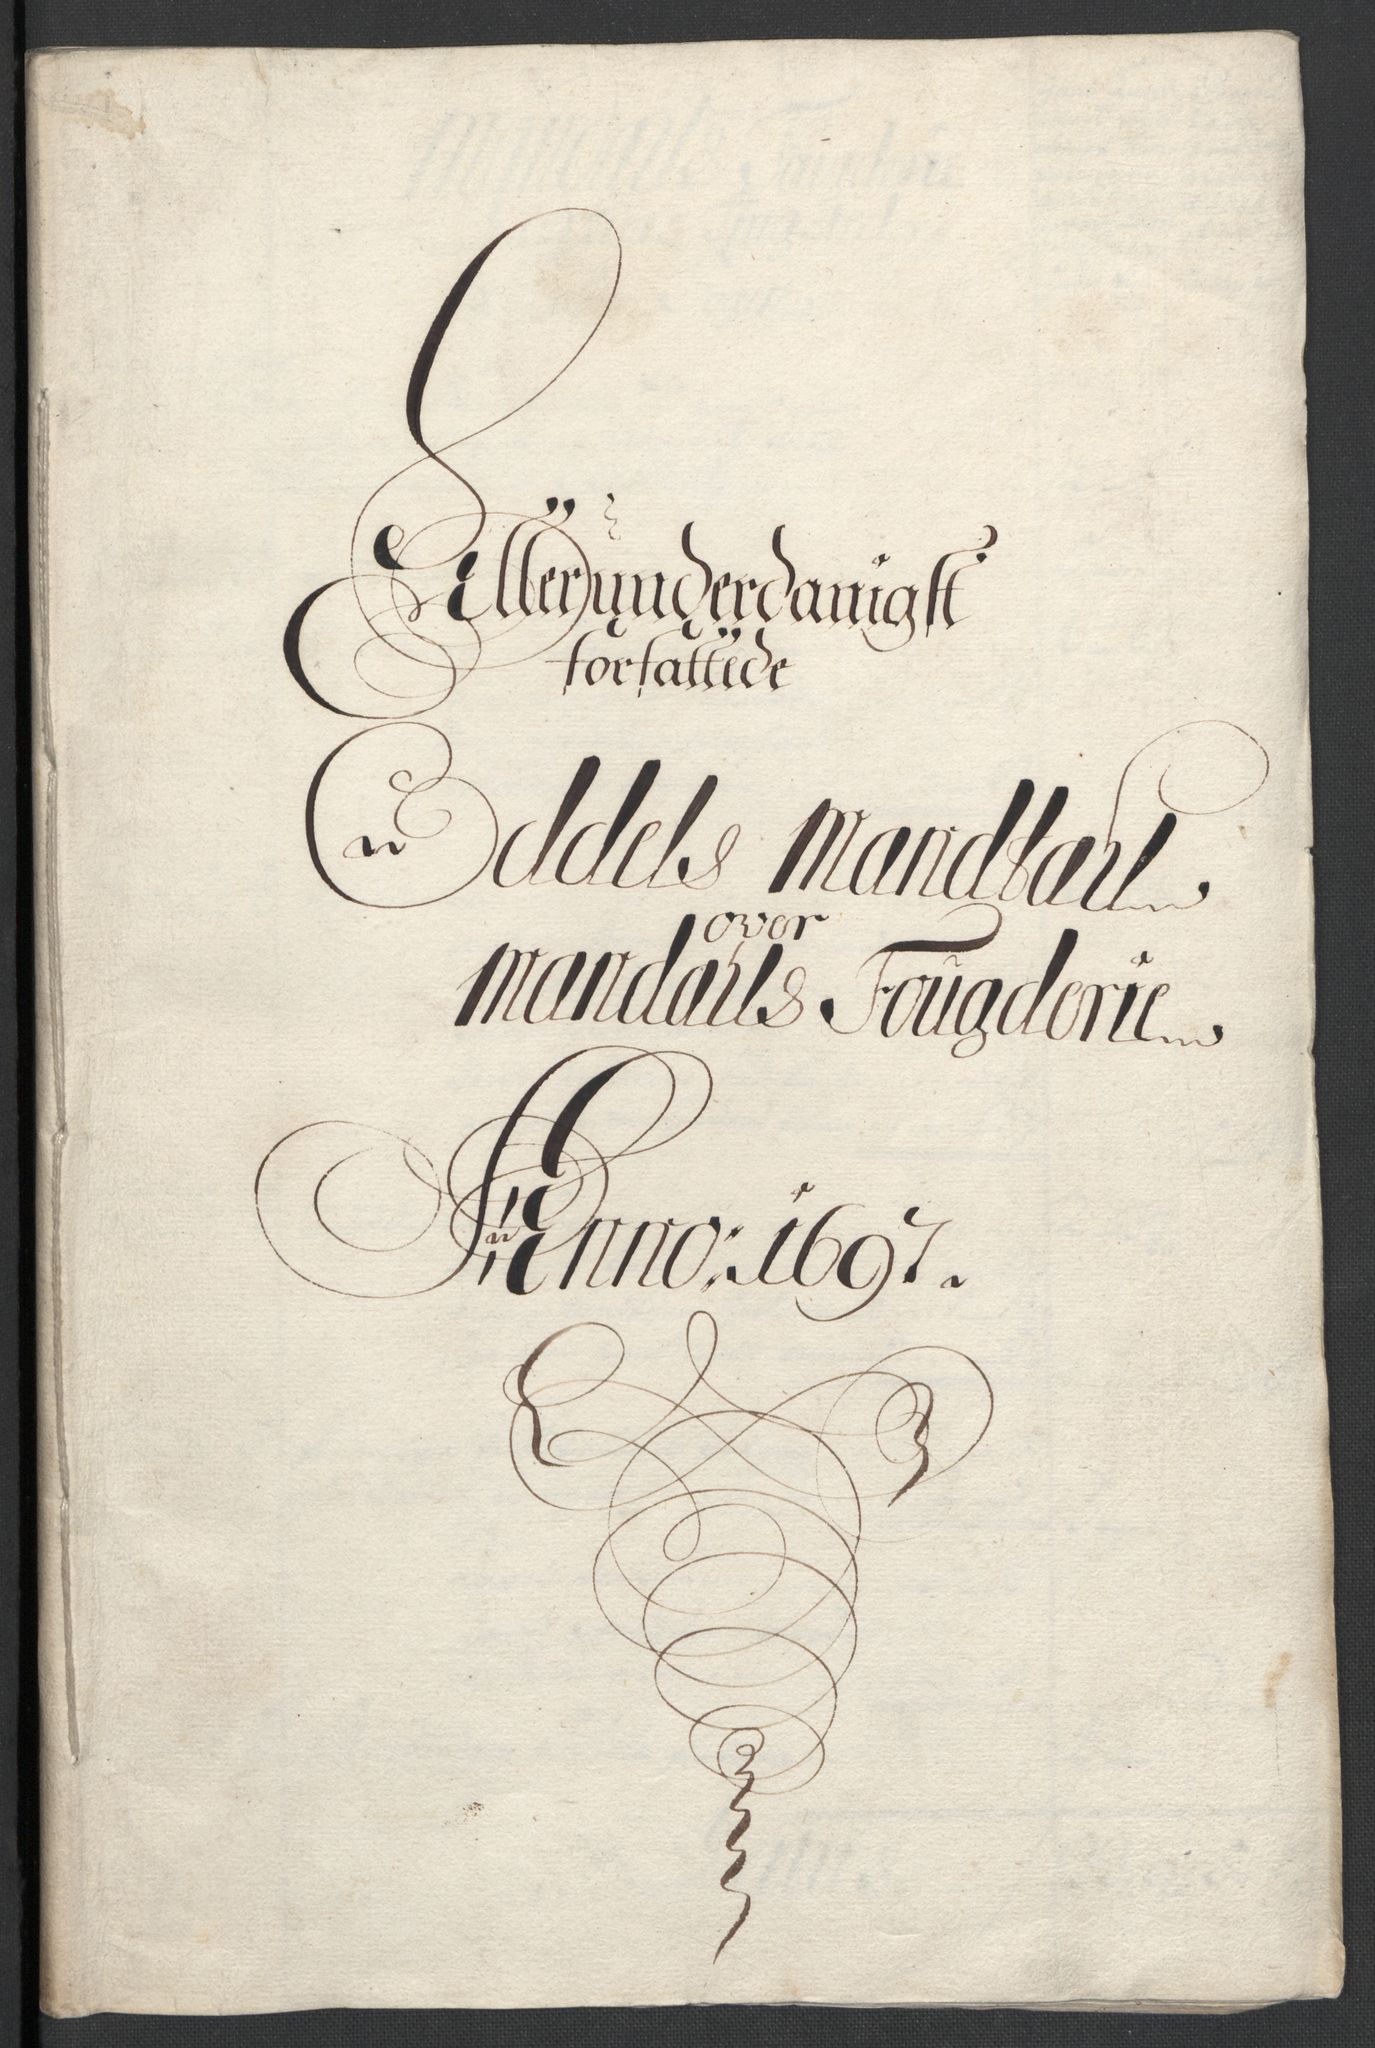 Allerunderdanigst
forfattede
Oddels Mandtall
over
Mandalls Fougderie
Anno: 1697.